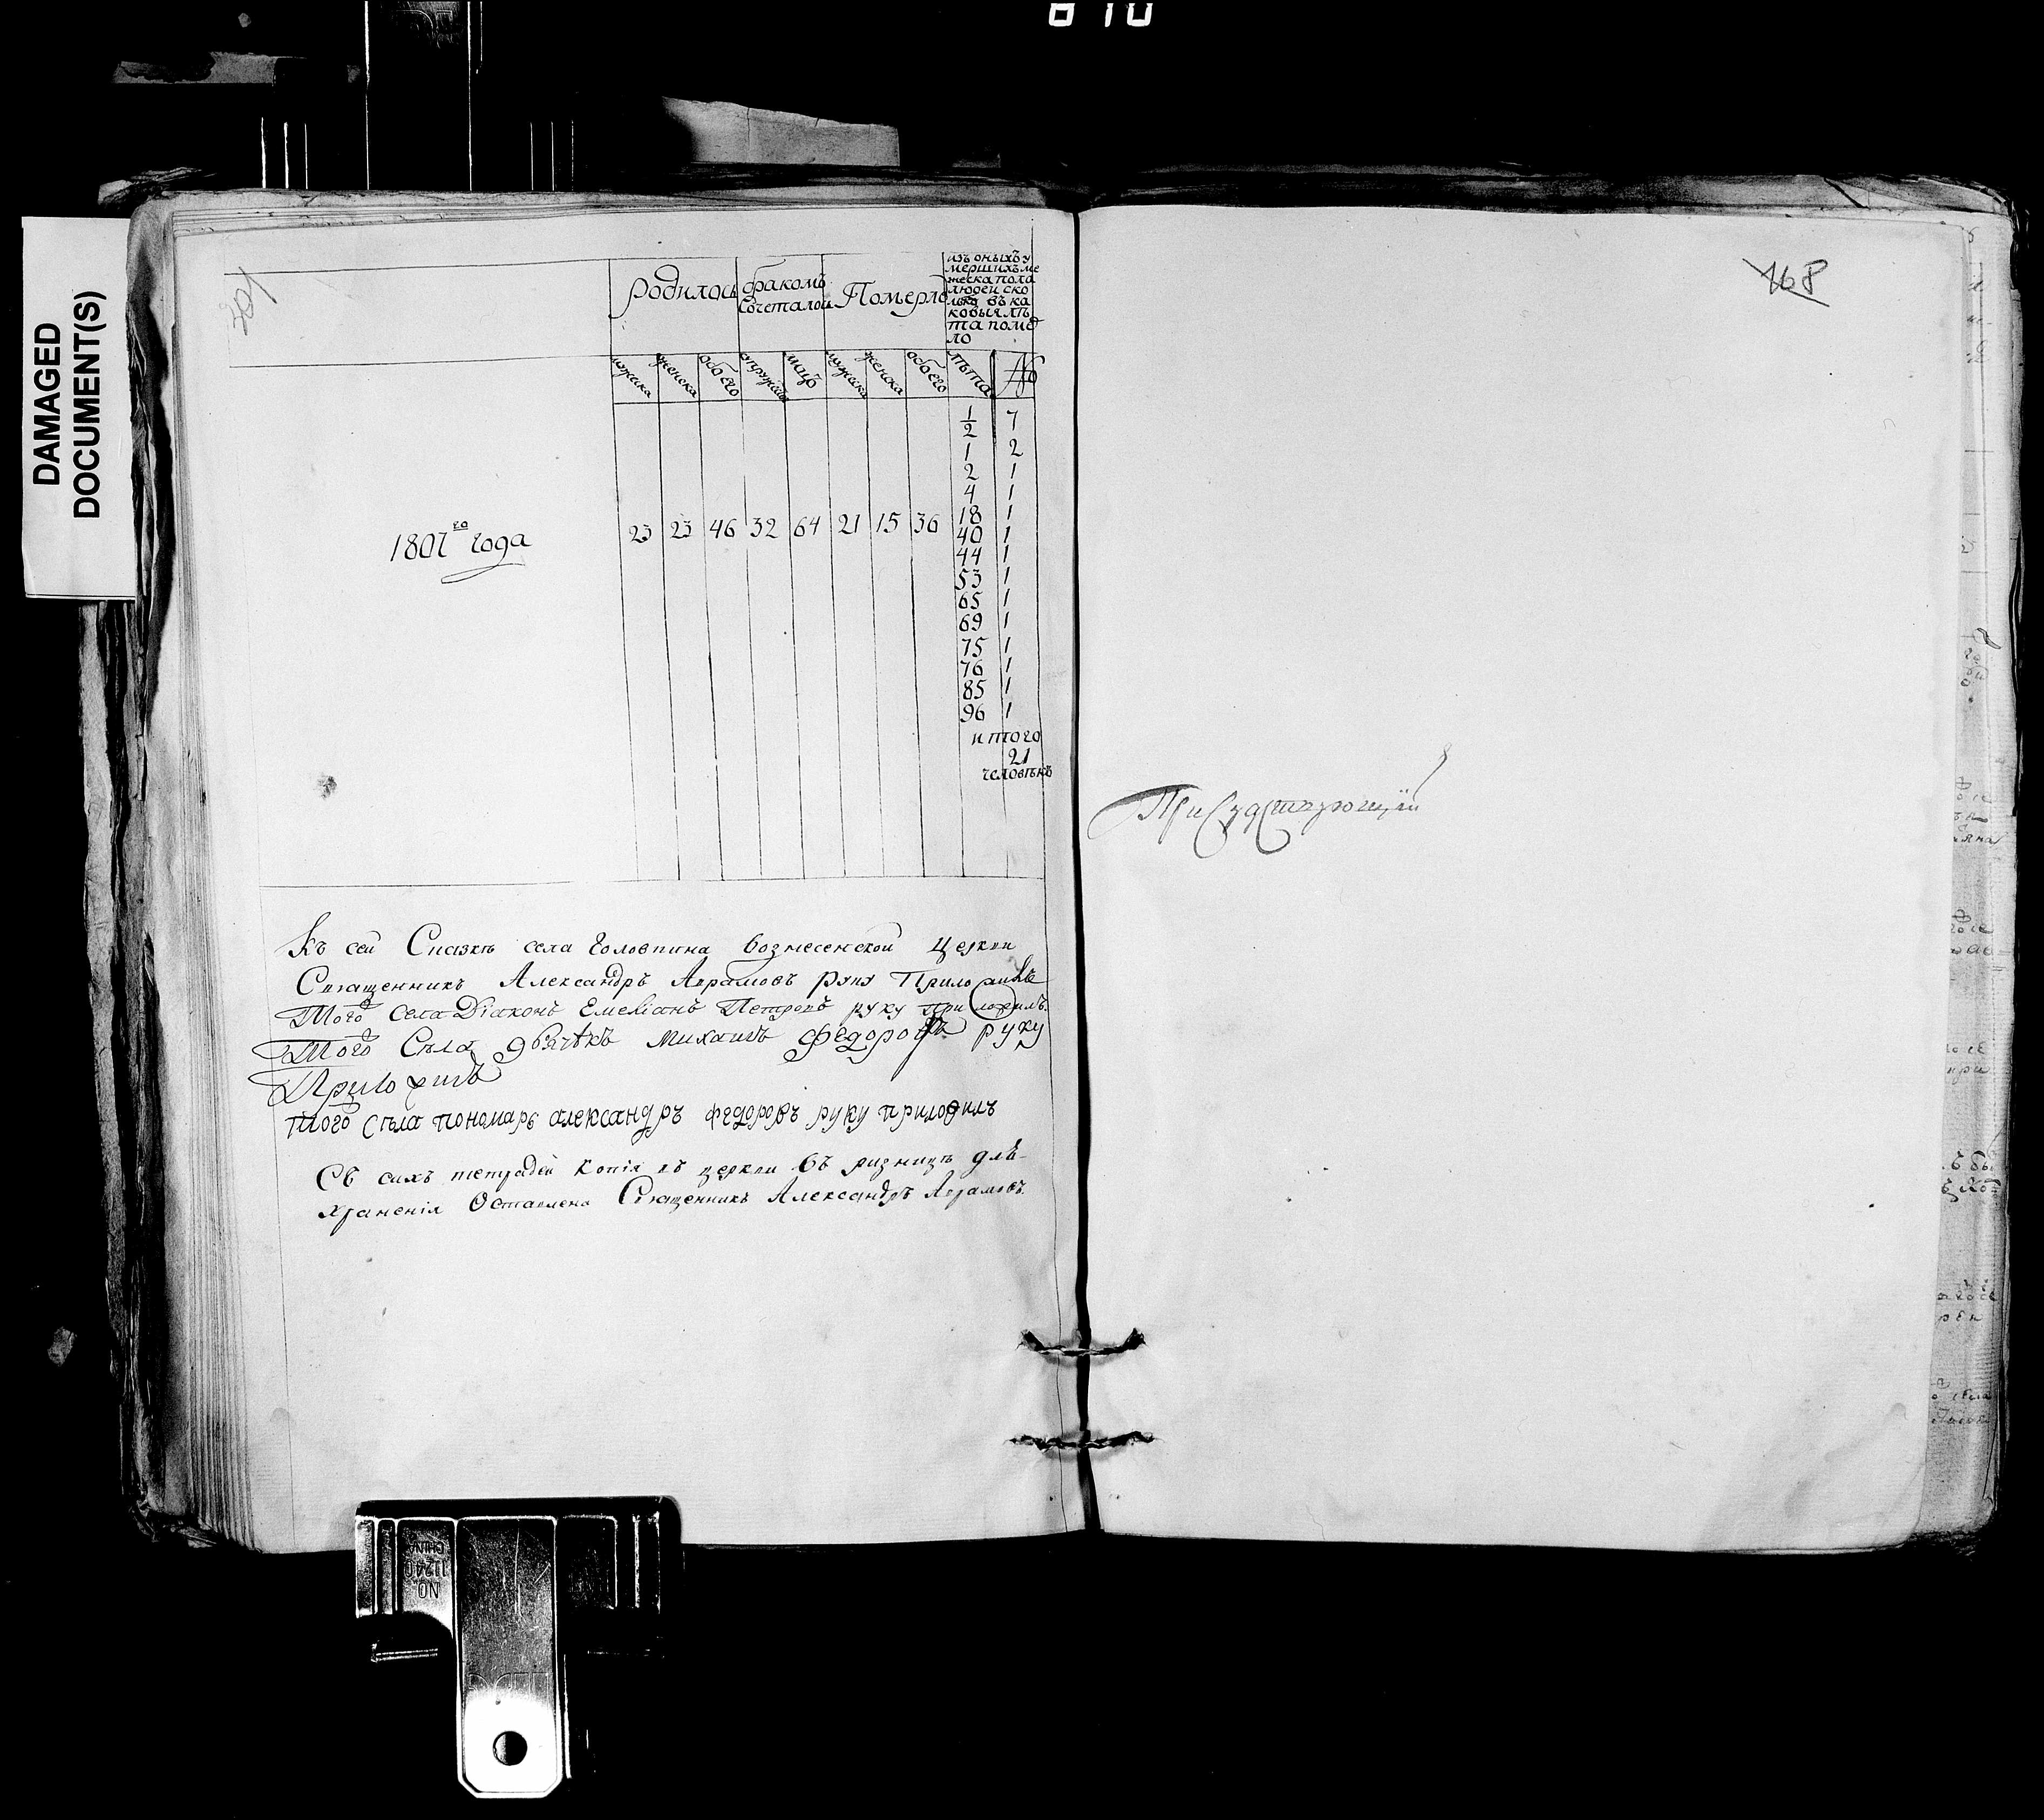 810
DAMAGED
DOCUMENT(S)
родилось бракомъ Сочеталось Померло
изъ оныхъ у
мершихъ мѣ
жеска пола
людей ско
лько въ ка
ковыя лѣ
та поме
ло
мужска женска обоего супружій лицъ мужска женска обоего лѣта №
1/2 7
1 2
2 1
4 1
18 1
1807го года 23 23 46 32 64 21 15 36
40 1
44 1
53 1
65 1
69 1
75 1
76 1
85 1
96 1
итого
21
человѣкъ
Къ сей Сказкѣ села Головтина Вознесенской Церкви
Священникъ Александръ Аврамовъ руку Приложилъ
Того села Діаконъ Емеліанъ Петровъ руку приложилъ
Того Сѣла дьячекъ Михаилъ Федоровъ руку
Приложилъ
того Сѣла пономарь александръ федоровъ руку приложилъ
Съ сихъ тетрадей копія въ церкви въ ризницѣ длѣ-
храненія Оставлена Священникъ Александръ Аврамовъ.
168
Присудствующій
NO.
11240
CHINA